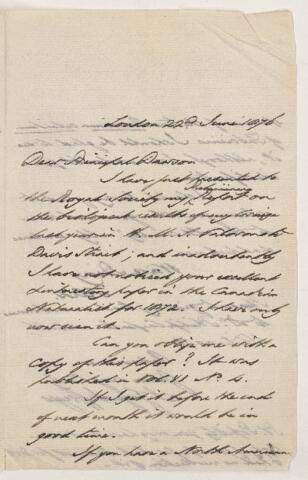 London 22d June 1876
Dear Principal Dawson
I have just presented to
Preliminary
the Royal Society my Report on
the biological results of my cruise
last year in the H.M.S. Valorous to
Davis Strait; and inadvertently
I have not noticed your excellent
& interesting paper in the Canadian
Naturalist for 1872. I have only
now seen it.
Can you oblige me with a
copy of this paper? It was
published in Vol. VI No. 4.
If I get it before the end
of next month it would be in
good time.
If you have a North American